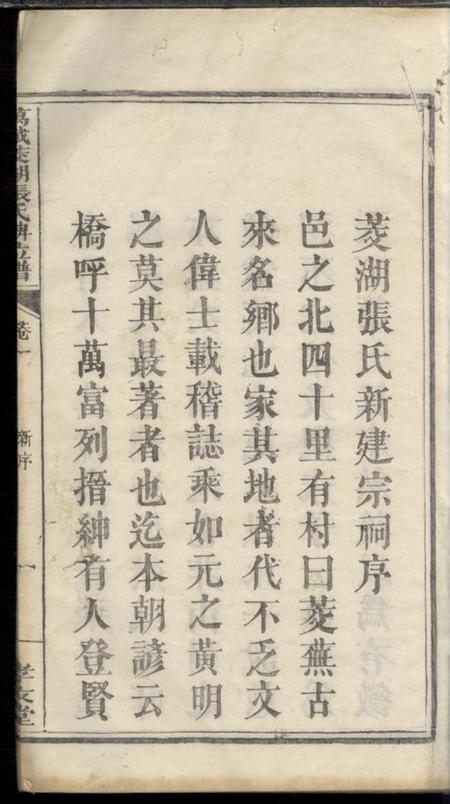 菱湖張氏新建宗祠序
邑之北四十里有村曰菱蕪古
來名鄉也家其地者代不乏文
人偉士載稽誌乘如元之黃明
之莫其最著者也迄本朝諺云
橋呼十萬富列搢紳有人登賢
萬載 湖張氏 譜
卷一
新序
一
孝友堂